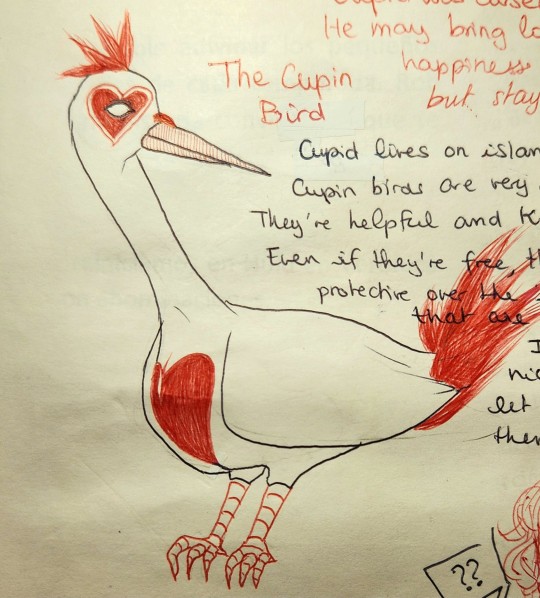 He may bring
happiness
but stay
The Cupin
Bird
Cupid lives on
Cupin birds are very
They're helpful and
Even if they're free,
protective over the
that are
let
??